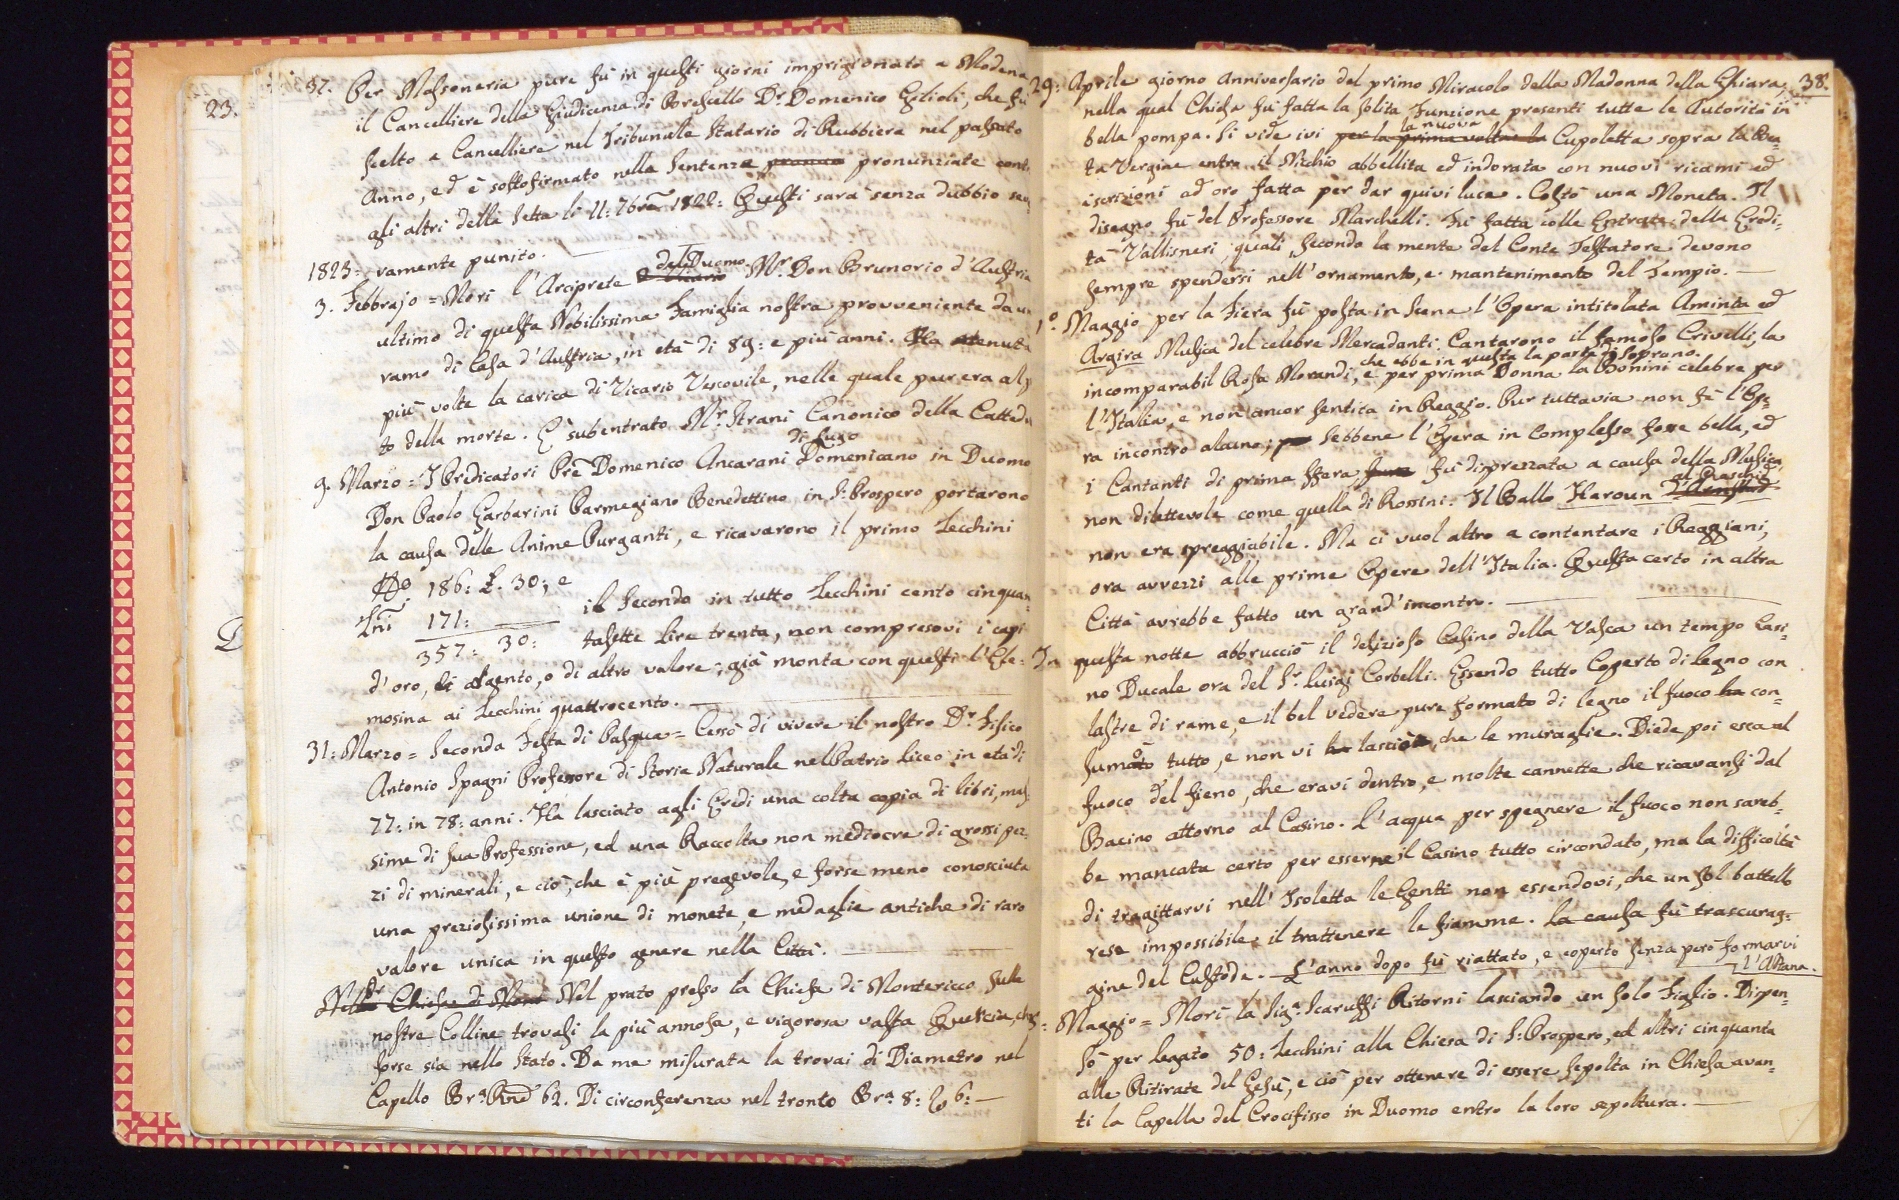 23.
37. Per Massoneria pure fù in questi giorni imprigionato a Modena
il Cancelliere della Giudicenza di Brescello Dr. Domenico Eglioli, che fù
scelto a Cancelliere nel Tribunale Statario di Rubbiera nel passato
Anno, ed è sottofirmato nelle Sentenze pronunziate cont.
gli altri della Setta li 11: 7bre 1822: Questi sarà senza dubbio se
1823: veramente punito.
3. Febbrajo = Morì l'Arciprete del Duomo Mr. Don Brunorio d'Austria
ultimo di questa Nobilissima Famiglia nostra provveniente da un
ramo di Casa d'Austria, in età di 89: e più anni. Ha tenuta
più volte la carica di Vicario Vescovile, nelle quale pur era al p
to della morte. È subentrato Mr. Strani Canonico della Catted
9. Marzo = I Predicatori Pre Domenico Ancarani di Lugo Domenicano in Duomo
Don Paolo Garbarini Parmegiano Benedettino in S: Prospero portarono
la causa delle Anime Purganti, e ricavarono il primo Zecchini
No. 186: £. 30; e
Zni 171: il Secondo in tutto Zecchini cento cinquan=
357: 30: tasette Lire trenta, non compresovi i capi
d'oro, di argento, o di altro valore; già monta con questi l'Ele=
mosina ai Zecchini quattrocento.
31: Marzo = Seconda Festa di Pasqua = Cessò di vivere il nostro Dr. Fisico
Antonio Spagni Professore di Storia Naturale nel Patrio Liceo in età di
77: in 78: anni. Ha lasciato agli Eredi una colta copia di libri, mas
sime di sua Professione, ed una Raccolta non mediocre di grossi pez=
zi di minerali, e ciò, che è più pregevole, e forse meno conosciuta
una preziosissima unione di monete, e medaglie antiche di raro
valore unica in questo genere nella Città.
Nella Chiesa di Mont Nel prato presso la Chiesa di Montericco sulle
nostre Colline trovasi la più annosa, e vigorosa vasta Quercia, che
forse sia nello Stato. Da me misurata la trovai di Diametro nel
Capello Bra. 62. Di circonferenza nel tronto Bra. 8: 6:
38.
29: Aprile giorno anniversario del primo Miracolo della Madonna della Ghiara,
nella qual Chiesa fù fatta la solita Funzione presenti tutte le Autorità in
bella pompa. Si vide ivi per la prima volta la la nuova Cupoletta sopra la Bea=
ta Vergine entro il Nichio abbellita ed indorata con nuovi ricami ed
iscrizioni ad oro fatta per dar quivi luce. Costò una Moneta. Il
disegno fù del Professore Marchelli. Fù fatta colle Entrate della Eredi=
tà Vallisneri, quali secondo la mente del Conte Testatore devono
sempre spendersi nell'ornamento, e mantenimento del Tempio.
1o. Maggio per la Fiera fù posta in Scena l'Opera intitolata Aminta ed
Argira Musica del celebre Mercadanti. Cantarono il famoso Crivelli, la
incomparabil Rosa Morandi, che ebbe in questa la parte di Soprano. e per prima Donna la Bonini celebre per
l'Italia, e non ancor sentita in Reggio. Pur tuttavia non fù l'Ope=
ra incontro alcuno; sebbene l'Opera in complesso fosse bella, ed
i Cantanti di prima sfera, fù disprezzata a causa della Musica
non dilettevole come quella di Rossini: Il Ballo Haroun al Raschid
non era spreggiabile. Ma ci vuol altro a contentare i Reggiani,
ora avvezzi alle prime Opere dell'Italia. Questa certo in altra
Città avrebbe fatto un grand'incontro.
In questa notte abbrucciò il delizioso Casino della Vasca un tempo Casi=
no Ducale ora del Sr. Luigi Corbelli. Essendo tutto Coperto di legno con
lastre di rame, e il bel vedere pure formato di legno il fuoco ha con=
sumò tutto, e non vi ha lasciò, che le muraglie. Diede poi esca al
fuoco del fieno, che eravi dentro, e molte cannette che ricavansi dal
Bacino attorno al Casino. L'acqua per spegnere il fuoco non sareb=
be mancata certo per esserne il Casino tutto circondato, ma la difficoltà
di tragittarvi nell'Isoletta le Genti non essendovi, che un sol battello
rese impossibile il trattenere le fiamme. La causa fù trascurag=
gine del Custode. L'anno dopo fù riattato, e coperto senza però formarvi
l'Altana.
Maggio = Morì la Siga. Scaruffi Ritorni lasciando un solo Figlio. Dispen=
sò per legato 50: Zecchini alla Chiesa di S: Prospero, ed altri cinquanta
alle Ritirate del Gesù, e ciò per ottenere di essere sepolta in Chiesa avan=
ti la Capella del Crocifisso in Duomo entro la loro sepoltura.